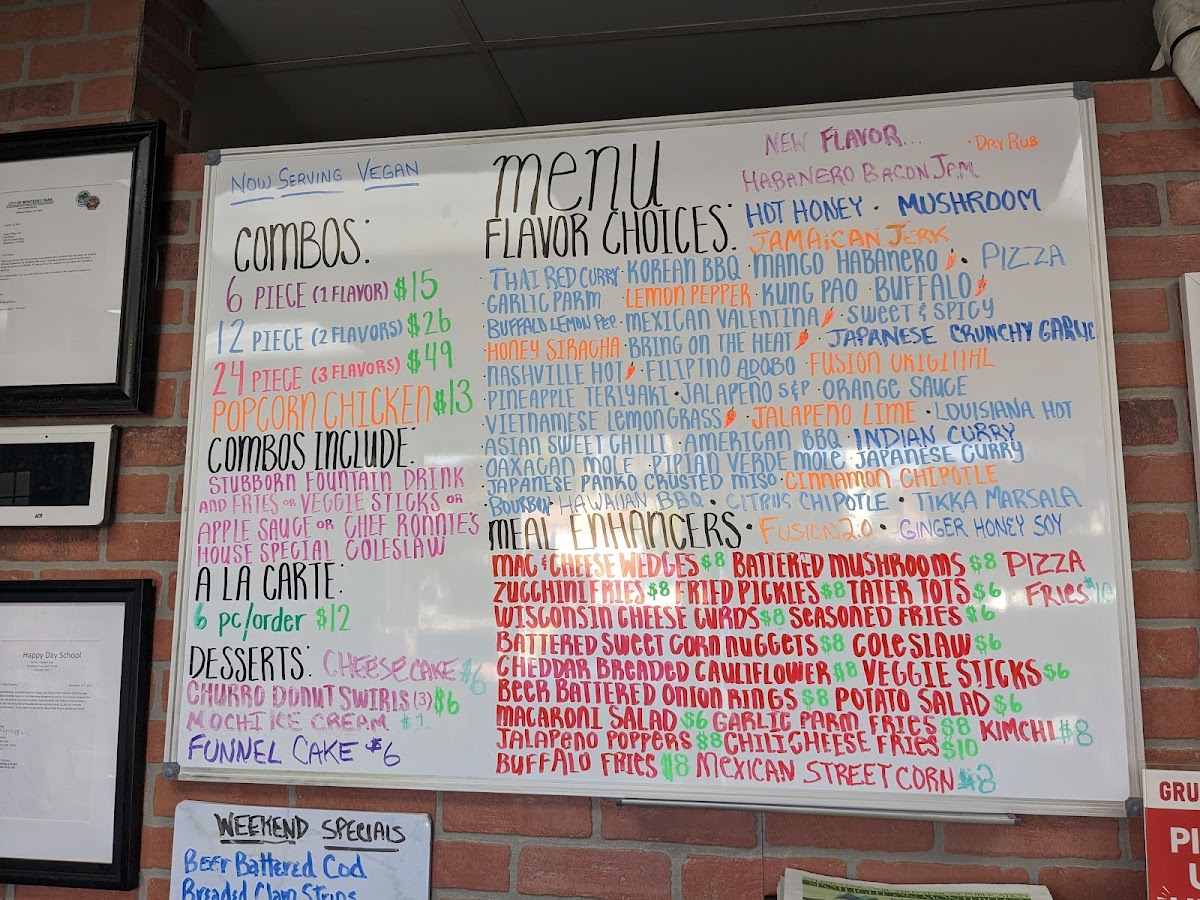 NOW SERVING VEGAN
COMBOS:
6 PIECE (1 FLAVOR) $15
12 PIECE (2 FLAVORS) $26
24 PIECE (3 FLAVORS) $49
POPCORN CHICKEN $13
COMBOS INCLUDE:
STUBBORN FOUNTAIN DRINK
AND FRIES OR VEGGIE STICKS OR
APPLE SAUCE OR CHEF RONNIE'S
HOUSE SPECIAL COLESLAW
A LA CARTE:
6 pc/order $12
DESSERTS: CHEESECAKE $6
CHURRO DONUT SWIRLS (3) $6
MOCHI ICE CREAM $1
FUNNEL CAKE $6
menu
NEW FLAVOR... · DRY RUB
HABANERO BACON JAM
HOT HONEY · MUSHROOM
FLAVOR CHOICES: JAMAICAN JERK
· THAI RED CURRY · KOREAN BBQ · MANGO HABANERO · PIZZA
· GARLIC PARM · LEMON PEPPER · KUNG PAO · BUFFALO
· BUFFALO LEMON PEP. · MEXICAN VALENTINA · SWEET & SPICY
· HONEY SIRACHA · BRING ON THE HEAT · JAPANESE CRUNCHY GARLIC
· NASHVILLE HOT · FILIPINO ADOBO · FUSION ORIGINAL
· PINEAPPLE TERIYAKI · JALAPENO S&P · ORANGE SAUCE
· VIETNAMESE LEMONGRASS · JALAPENO LIME · LOUISIANA HOT
· ASIAN SWEET CHILI · AMERICAN BBQ · INDIAN CURRY
· OAXACAN MOLE · PIPIAN VERDE MOLE · JAPANESE CURRY
· JAPANESE PANKO CRUSTED MISO · CINNAMON CHIPOTLE
· BOURBON · HAWAIIAN BBQ · CITRUS CHIPOTLE · TIKKA MARSALA
MEAL ENHANCERS · FUSION 2.0 · GINGER HONEY SOY
MAC & CHEESE WEDGES $8 BATTERED MUSHROOMS $8 PIZZA
ZUCCHINI FRIES $8 FRIED PICKLES $8 TATER TOTS $6 FRIES $10
WISCONSIN CHEESE CURDS $8 SEASONED FRIES $6
BATTERED SWEET CORN NUGGETS $8 COLESLAW $6
CHEDDAR BREADED CAULIFLOWER $8 VEGGIE STICKS $6
BEER BATTERED ONION RINGS $8 POTATO SALAD $6
MACARONI SALAD $6 GARLIC PARM FRIES $8 KIMCHI $8
JALAPENO POPPERS $8 CHILI CHEESE FRIES $10
BUFFALO FRIES $8 MEXICAN STREET CORN $8
WEEKEND SPECIALS
Beer Battered Cod
Breaded Clam Strips
CITY OF MONTEREY PARK
Happy Day School
GRU
PI